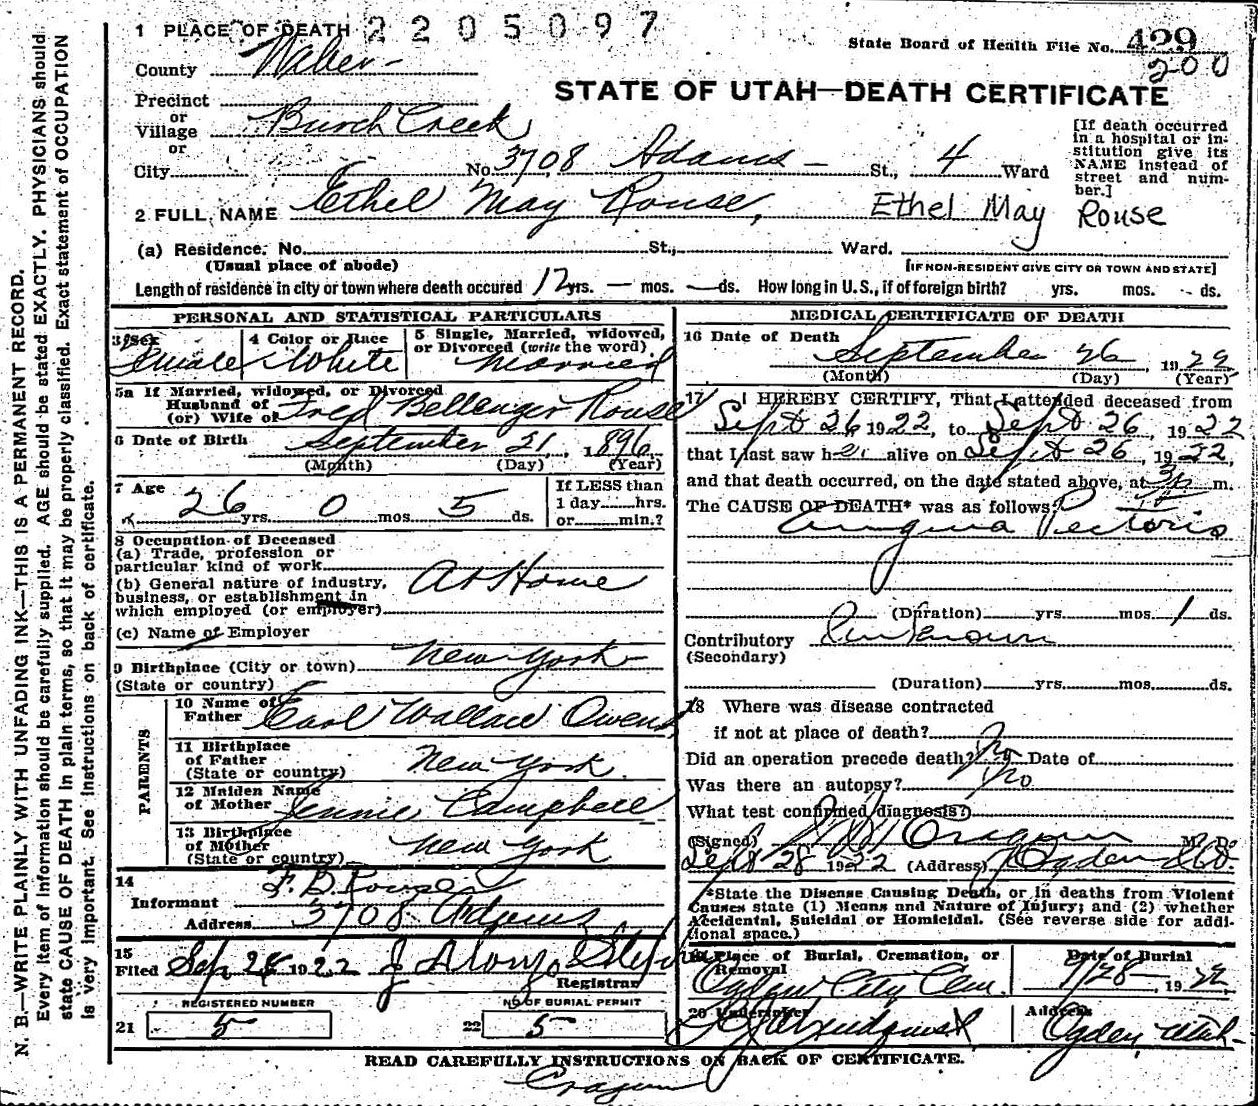 1 PLACE OF DEATH 2205097
State Board of Health File No. 429
200
County Weber
STATE OF UTAH—DEATH CERTIFICATE
Precinct
or
Village Burch Creek
or
City No. 3708 Adams St., 4 Ward
[If death occurred in a hospital or institution give its NAME instead of street and number.]
2 FULL NAME Ethel May Rouse, Ethel May Rouse
(a) Residence. No. St., Ward.
(Usual place of abode) [IF NON-RESIDENT GIVE CITY OR TOWN AND STATE]
Length of residence in city or town where death occured 12 yrs. — mos. — ds. How long in U.S., if of foreign birth? yrs. mos. ds.
PERSONAL AND STATISTICAL PARTICULARS
3 Sex 4 Color or Race 5 Single, Married, widowed,
or Divorced (write the word)
Female White Married
5a If Married, widowed, or Divorced
Husband of
(or) Wife of Fred Bellenger Rouse
6 Date of Birth September 21, 1896
(Month) (Day) (Year)
7 Age 26 yrs. 0 mos 5 ds.
If LESS than
1 day hrs.
or min.?
8 Occupation of Deceased
(a) Trade, profession or
particular kind of work At Home
(b) General nature of industry,
business, or establishment in
which employed (or employer)
(c) Name of Employer
9 Birthplace (City or town) New York
(State or country)
PARENTS
10 Name of
Father Earl Wallace Owens
11 Birthplace
of Father
(State or country) New York
12 Maiden Name
of Mother Jennie Campbell
13 Birthplace
of Mother
(State or country) New York
14
Informant F. B. Rouse
Address 3708 Adams
15
Filed Sep 1922 J Alonzo
Registrar
REGISTERED NUMBER NO OF BURIAL PERMIT
21 5 22 5
MEDICAL CERTIFICATE OF DEATH
16 Date of Death
September 26, 1922
(Month) (Day) (Year)
17 I HEREBY CERTIFY, That I attended deceased from
Sept 26 1922, to Sept 26, 1922
that I last saw her alive on Sept 26, 1922,
and that death occurred, on the date stated above, at m.
The CAUSE OF DEATH* was as follows:
Angina Pectoris
(Duration) yrs. mos. 1 ds.
Contributory Unknown
(Secondary)
(Duration) yrs. mos. ds.
18 Where was disease contracted
if not at place of death?
Did an operation precede death? No Date of
Was there an autopsy? No
What test confirmed diagnosis?
(Signed) Cragun M. D.
Sept 28 1922 (Address) Ogden
*State the Disease Causing Death, or in deaths from Violent
Causes state (1) Means and Nature of Injury; and (2) whether
Accidental, Suicidal or Homicidal. (See reverse side for addi-
tional space.)
19 Place of Burial, Cremation, or
Removal Date of Burial
Ogden City Cem. 9/28, 1922
20 Undertaker Address
Ogden, Utah
READ CAREFULLY INSTRUCTIONS ON BACK OF CERTIFICATE.
Cragun
N. B.—WRITE PLAINLY WITH UNFADING INK—THIS IS A PERMANENT RECORD.
Every item of information should be carefully supplied. AGE should be stated EXACTLY. PHYSICIANS should
state CAUSE OF DEATH in plain terms, so that it may be properly classified. Exact statement of OCCUPATION
is very important. See instructions on back of certificate.